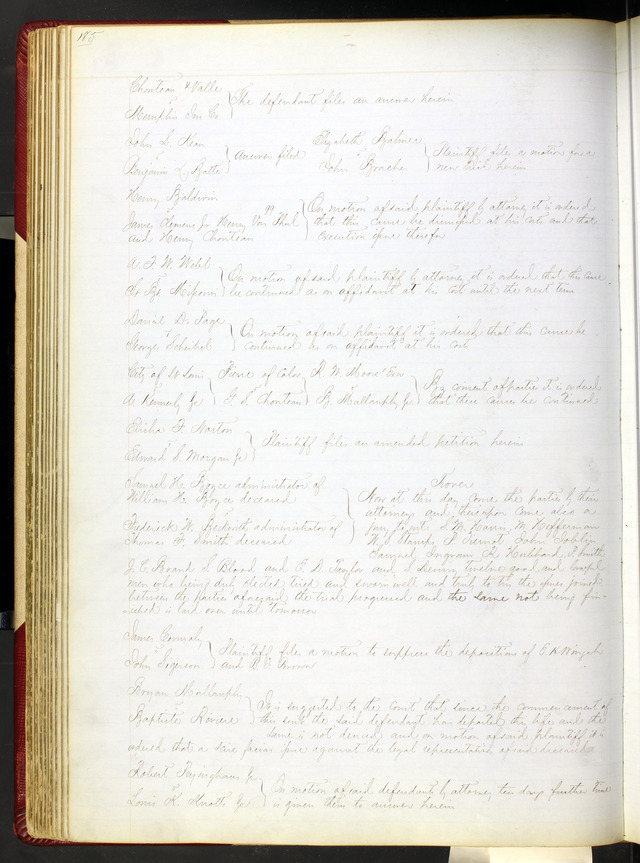 185
Chouteau & Valle
vs
Memphis Ins Co } The defendant files an answer herein
John S. Kean
vs
Benjamin L. } Answer filed
Elizabeth Balmer
vs
John } Plaintiff files a motion for a
new trial herein
Henry Baldwin
vs 99
James Clemens Jr Henry Von Phul
and Henry Chouteau } On motion of said plaintiff by attorney it is ordered
that this cause be dismissed at his costs and that
Execution issue therefor
A. F. W. Webb
vs
} On motion of said plaintiff by attorney it is ordered that this cause
be continued as on affidavit at his cost until the next term
Daniel D. Page
vs
George } On motion of said plaintiff it is ordered that this cause be
continued as on affidavit at his cost
City of St Louis
vs
A. Kennerly Jr }
of Color
vs
G. S. Chouteau }
R. W. Exr
vs
B. Mullanphy Jr } By consent of parties it is ordered
that these causes be continued
Elisha F. Norton
vs
Edward S. Morgan Jr } Plaintiff files an amended petition herein
Samuel H. Boyce administrator of
William H. Boyce deceased
vs
Frederick W. Beckwith administrator of
Thomas F. Smith deceased }
Trover
Now at this day come the parties by their
attorneys and thereupon come also a
jury to wit S. M. Harris M. Hofferman
W. S. Stump, John
Samuel Ingram H. Hubbard, Smith
J. C. S. Bland and E. D. Taylor and S. twelve good and lawful
men who being duly elected tried and sworn well and truly to try the issues joined
between the parties aforesaid the trial progressed and the same not being fin-
ished is laid over until tomorrow
James Connoly
vs
John } Plaintiff files a motion to suppress the depositions of E. H.
and C. Brown
Bryan Mullanphy
vs
Baptiste Riviere } It is suggested to the Court that since the commencement of
this suit the said defendant has departed this life and the
same is not denied and on motion of said plaintiff it is
ordered that a scire facias issue against the legal representatives of said deceased
Robert Jr
vs
Louis K. Knotts Jr } On motion of said defendants by attorney ten days further time
is given them to answer herein